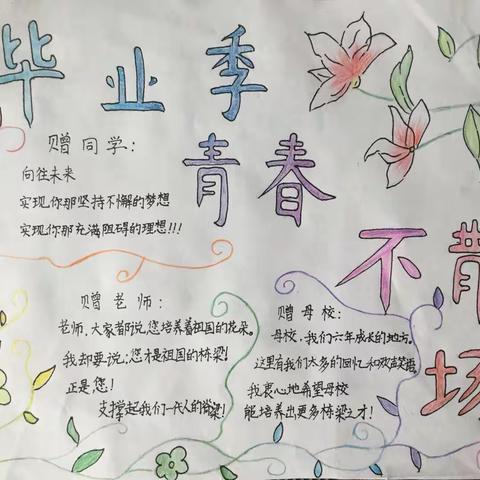 毕业季
青春
不散
场
赠同学:
向往未来
实现你那坚持不懈的梦想
实现你那充满阻碍的理想!!!
赠老师:
老师,大家都说,您培养着祖国的花朵。
我却要说:您才是祖国的栋梁!
正是您!
支撑起我们一代人的脊梁!
赠母校:
母校,我们六年成长的地方。
这里有我们太多的回忆和欢声笑语,
我衷心地希望母校
能培养出更多栋梁之才!